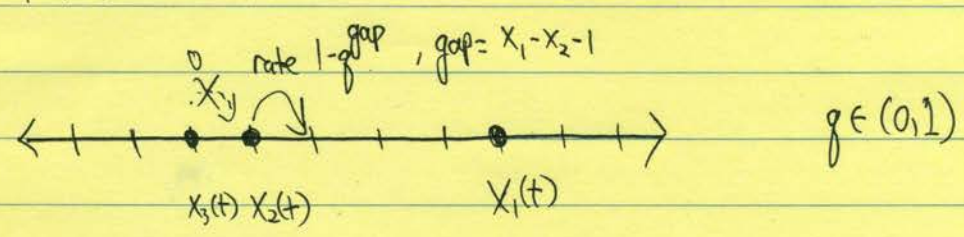 0 rate 1-q^gap , gap = X₁-X₂-1
q ∈ (0,1)
X₃(t) X₂(t) X₁(t)